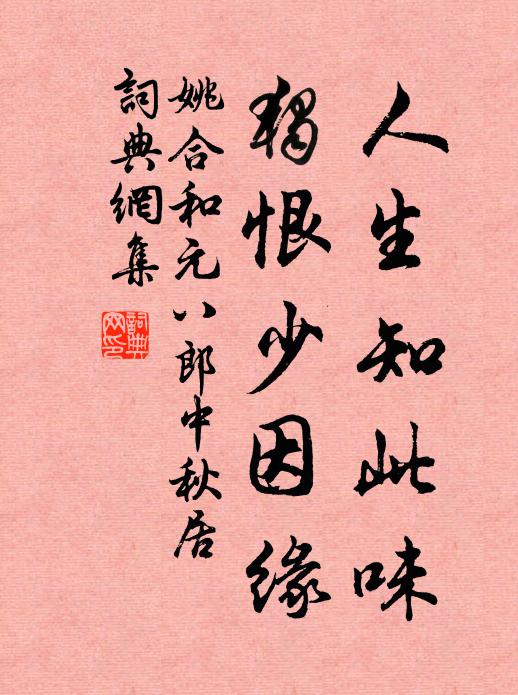 人生知此味
獨恨少因緣
姚合和元八郎中秋居
詞典網集
詞典網印